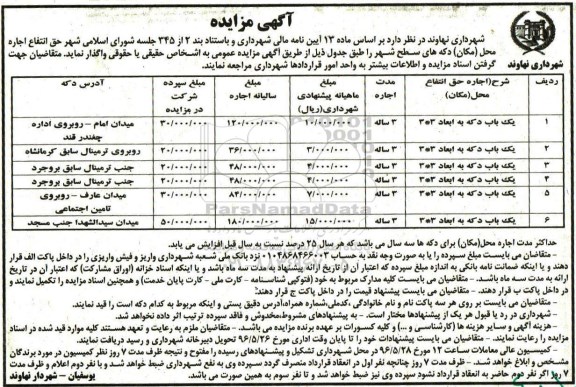 آگهی مزایده
شهرداری نهاوند
شهرداری نهاوند در نظر دارد بر اساس ماده ۱۳ آیین نامه مالی شهرداری و باستناد بند ۲ از ۳۴۵ جلسه شورای اسلامی شهر حق انتفاع اجاره
محل (مکان) دکه های سطح شهر را طبق جدول ذیل از طریق آگهی مزایده عمومی به اشخاص حقیقی یا حقوقی واگذار نماید. متقاضیان جهت
گرفتن اسناد مزایده و اطلاعات بیشتر به واحد امور قراردادها شهرداری مراجعه نمایند.
ردیف شرح(اجاره حق انتفاع محل(مکان) مدت اجاره مبلغ ماهیانه پیشنهادی شهرداری(ریال) مبلغ سالیانه اجاره مبلغ سپرده شرکت در مزایده آدرس دکه
۱ یک باب دکه به ابعاد ۳*۳ ۳ ساله ۱۰/۰۰۰/۰۰۰ ۱۲۰/۰۰۰/۰۰۰ ۳۰/۰۰۰/۰۰۰ میدان امام – روبروی اداره چغندر قند
۲ یک باب دکه به ابعاد ۳*۳ ۳ ساله ۳/۰۰۰/۰۰۰ ۳۶/۰۰۰/۰۰۰ ۲۰/۰۰۰/۰۰۰ روبروی ترمینال سابق کرمانشاه
۳ یک باب دکه به ابعاد ۳*۳ ۳ ساله ۴/۰۰۰/۰۰۰ ۴۸/۰۰۰/۰۰۰ ۲۰/۰۰۰/۰۰۰ جنب ترمینال سابق بروجرد
۴ یک باب دکه به ابعاد ۳*۳ ۳ ساله ۴/۰۰۰/۰۰۰ ۴۸/۰۰۰/۰۰۰ ۲۰/۰۰۰/۰۰۰ جنب ترمینال سابق بروجرد
۵ یک باب دکه به ابعاد ۳*۳ ۳ ساله ۷/۰۰۰/۰۰۰ ۸۴/۰۰۰/۰۰۰ ۳۰/۰۰۰/۰۰۰ میدان عارف – روبروی تامین اجتماعی
۶ یک باب دکه به ابعاد ۳*۳ ۳ ساله ۱۵/۰۰۰/۰۰۰ ۱۸۰/۰۰۰/۰۰۰ ۵۰/۰۰۰/۰۰۰ میدان سیدالشهدا جنب مسجد
حداکثر مدت اجاره محل(مکان) برای دکه ها سه سال می باشد که هر سال ۲۵ درصد نسبت به سال قبل افزایش می یابد.
- متقاضی می بایست مبلغ سپرده را یا به صورت وجه نقد به حساب ۰۱۰۴۸۶۸۴۶۶۰۰۳ نزد بانک ملی شعبه شهرداری واریز و فیش واریزی را در داخل پاکت الف قرار
دهند و یا اینکه ضمانت نامه بانکی به اندازه مبلغ سپرده که اعتبار آن از تاریخ ارائه پیشنهاد به مدت سه ماه باشد و یا اینکه اسناد خزانه (اوراق مشارکت) که اعتبار آن در تاریخ
ارائه به مدت سه ماه باشد. – متقاضی می بایست کلیه مدارک مربوط به خود (فتوکپی شناسنامه – کارت ملی – کارت پایان خدمت) و همچنین اسناد مزایده را تکمیل نمایند و
در داخل پاکت ب قرار دهند. – متقاضی می بایست پیشنهاد قیمت را در داخل پاکت ج قرار دهند.
– متقاضی می بایست بر روی هر سه پاکت نام و نام خانوادگی ،کدملی،شماره همراه،آدرس دقیق پستی و اینکه مربوط به کدام دکه است را قید نمایند.
– شهرداری در رد یا قبول هر یک از پیشنهادها مختار است. – به پیشنهادهای مشروط،مخدوش و فاقد سپرده ترتیب اثر داده نخواهد شد.
– هزینه آگهی و سایر هزینه ها (کارشناسی و ...) و کلیه کسورات بر عهده برنده مزایده می باشد. – متقاضیان ملزم به رعایت و تعهد هستند کلیه موارد قید شده در اسناد
مزایده را رعایت نمایند. – متقاضیان می بایست پیشنهادات خود را تا پایان وقت اداری مورخ ۹۶/۵/۲۶ تحویل دبیرخانه شهرداری و رسید دریافت نمایند.
– کمیسیون عالی معاملات ساعت ۱۲ مورخ ۹۶/۵/۲۸ در محل شهرداری تشکیل و پیشنهادهای رسیده را مفتوح و نتیجه ظرف مدت ۷ روز نظر کمیسیون در مورد برندگان
مشخص و ابلاغ خواهد شد. – ظرف مدت ۷ روز چنانچه نفر اول در انعقاد قرارداد منصرف گردد سپرده وی به نفع شهرداری ضبط خواهد شد و با نفر دوم اعلام و ظرف مدت
۷ روز اگر نفر دوم حاضر به انعقاد قرارداد نشود سپرده وی نیز ضبط خواهد شد و تا نفر سوم به همین صورت می باشد.
یوسفیان – شهردار نهاوند
ParsNamadData